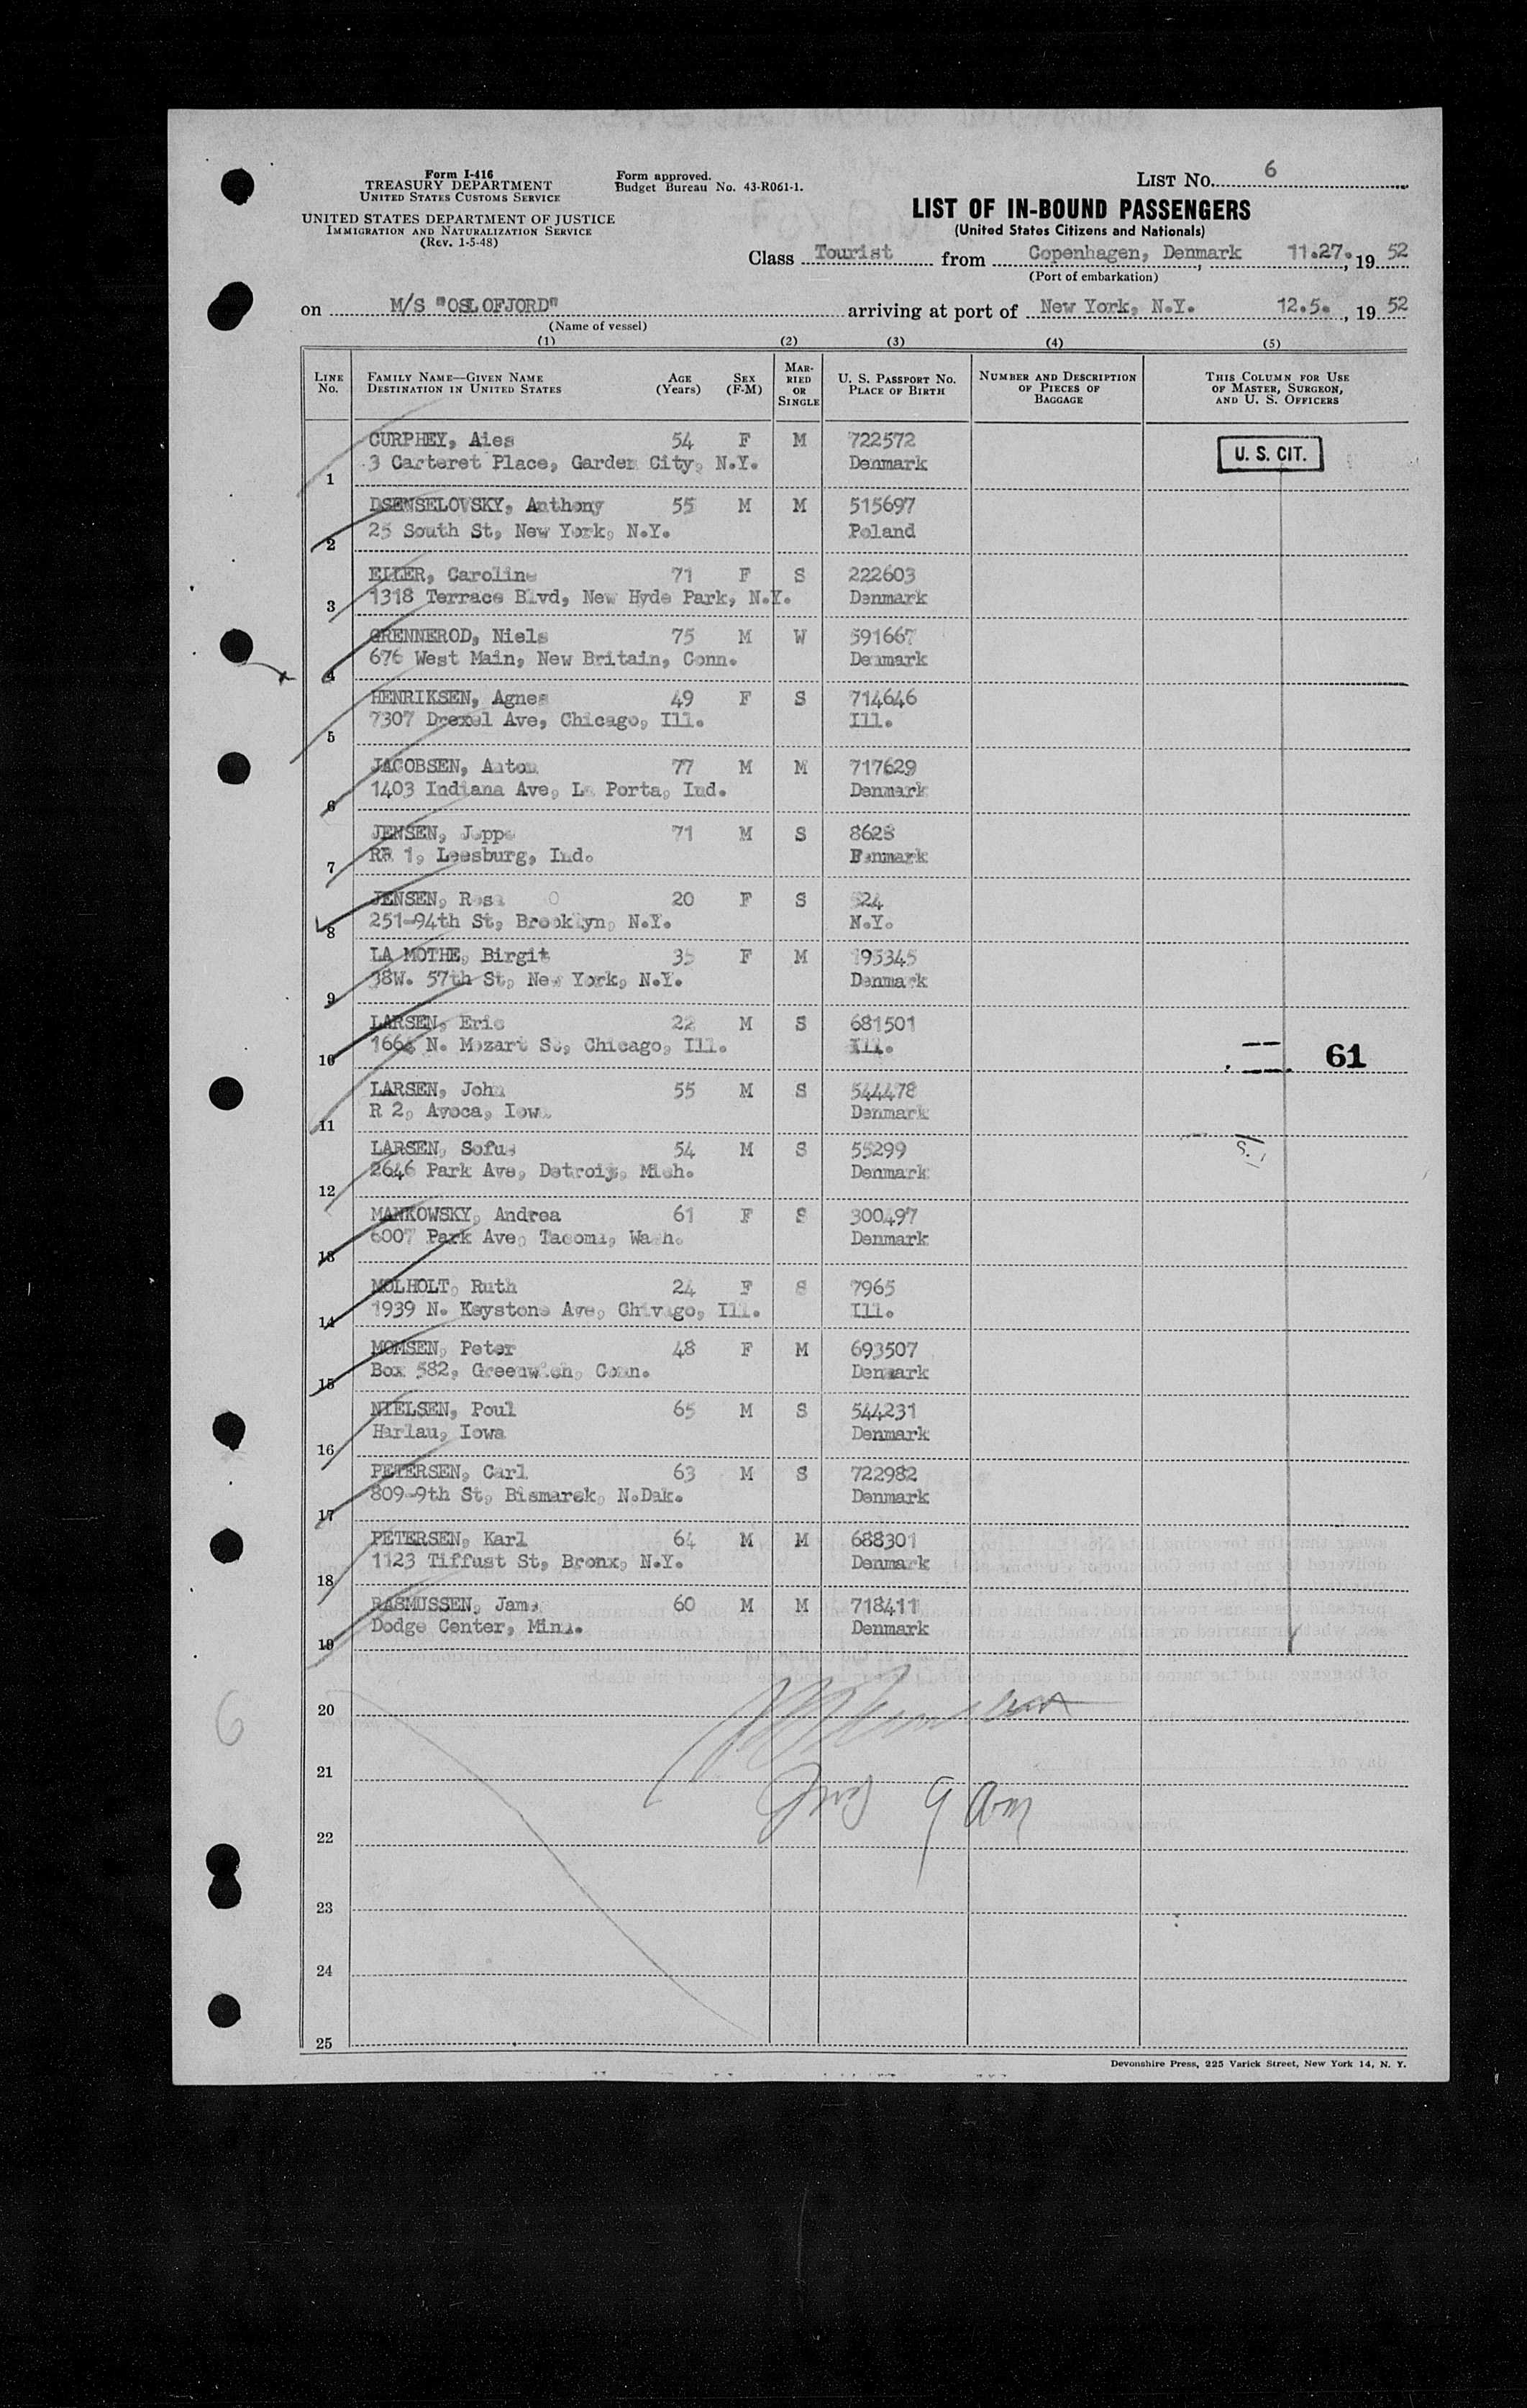 Form I-416
TREASURY DEPARTMENT
UNITED STATES CUSTOMS SERVICE
UNITED STATES DEPARTMENT OF JUSTICE
IMMIGRATION AND NATURALIZATION SERVICE
(Rev. 1-5-48)
Form approved.
Budget Bureau No. 43-R061-1.
LIST No. 6
LIST OF IN-BOUND PASSENGERS
(United States Citizens and Nationals)
Class Tourist from Copenhagen, Denmark, 11.27., 19 52
(Port of embarkation)
on M/S "OSLOFJORD" arriving at port of New York, N.Y. 12.5., 19 52
(Name of vessel)
(1) (2) (3) (4) (5)
LINE No. FAMILY NAME—GIVEN NAME DESTINATION IN UNITED STATES AGE (Years) SEX (F-M) MARRIED OR SINGLE U. S. PASSPORT NO. PLACE OF BIRTH NUMBER AND DESCRIPTION OF PIECES OF BAGGAGE THIS COLUMN FOR USE OF MASTER, SURGEON, AND U. S. OFFICERS
CURPHEY, Aies 54 F M 722572 U. S. CIT.
1 3 Carteret Place, Garden City, N.Y. Denmark
DSENSELOVSKY, Anthony 55 M M 515697
2 25 South St, New York, N.Y. Poland
EILER, Caroline 71 F S 222603
3 1318 Terrace Blvd, New Hyde Park, N.Y. Denmark
GRENNEROD, Niels 75 M W 591667
4 676 West Main, New Britain, Conn. Denmark
HENRIKSEN, Agnes 49 F S 714646
5 7307 Drexel Ave, Chicago, Ill. Ill.
JACOBSEN, Anton 77 M M 717629
6 1403 Indiana Ave, La Porta, Ind. Denmark
JENSEN, Jeppe 71 M S 8628
7 RR 1, Leesburg, Ind. Denmark
JENSEN, Rosa 20 F S 524
8 251-94th St, Brooklyn, N.Y. N.Y.
LA MOTHE, Birgit 35 F M 195345
9 38W. 57th St, New York, N.Y. Denmark
LARSEN, Eric 22 M S 681501
10 1664 N. Mozart St, Chicago, Ill. Ill. 61
LARSEN, John 55 M S 544478
11 R 2, Avoca, Iowa Denmark
LARSEN, Sofus 54 M S 55299
12 2646 Park Ave, Detroit, Mich. Denmark
MANKOWSKY, Andrea 61 F S 300497
13 6007 Park Ave, Tacoma, Wash. Denmark
MOLHOLT, Ruth 24 F S 7965
14 1939 N. Keystone Ave, Chivago, Ill. Ill.
MOMSEN, Peter 48 F M 693507
15 Box 582, Greenwich, Conn. Denmark
NIELSEN, Poul 65 M S 544231
16 Harlau, Iowa Denmark
PETERSEN, Carl 63 M S 722982
17 809-9th St, Bismarck, N.Dak. Denmark
PETERSEN, Karl 64 M M 688301
18 1123 Tiffust St, Bronx, N.Y. Denmark
RASMUSSEN, Jams 60 M M 718411
19 Dodge Center, Minn. Denmark
20
6
21
9 am
22
23
24
25
Devonshire Press, 225 Varick Street, New York 14, N. Y.